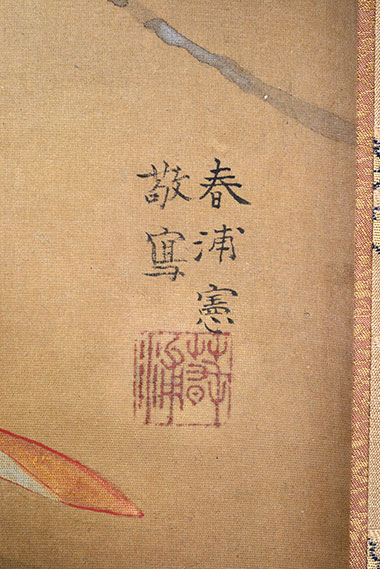 春浦憲
敬寫